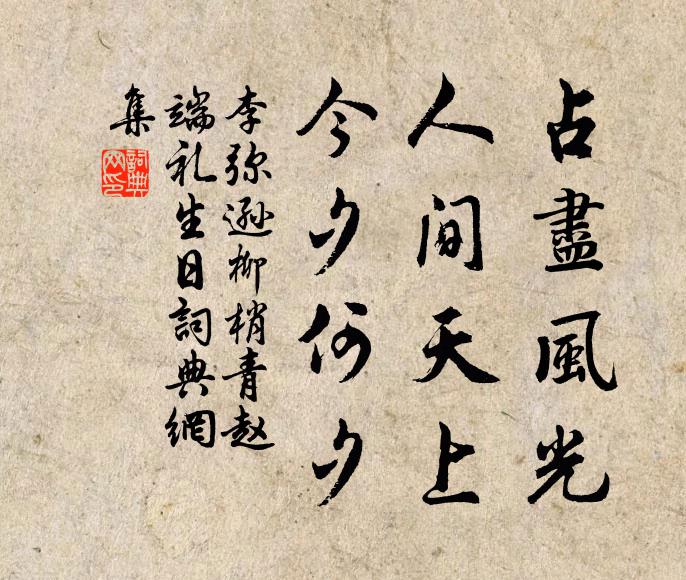 占盡風光
人間天上
今夕何夕
李弥遜柳梢青赵
端礼生日詞典網
集
詞典網印